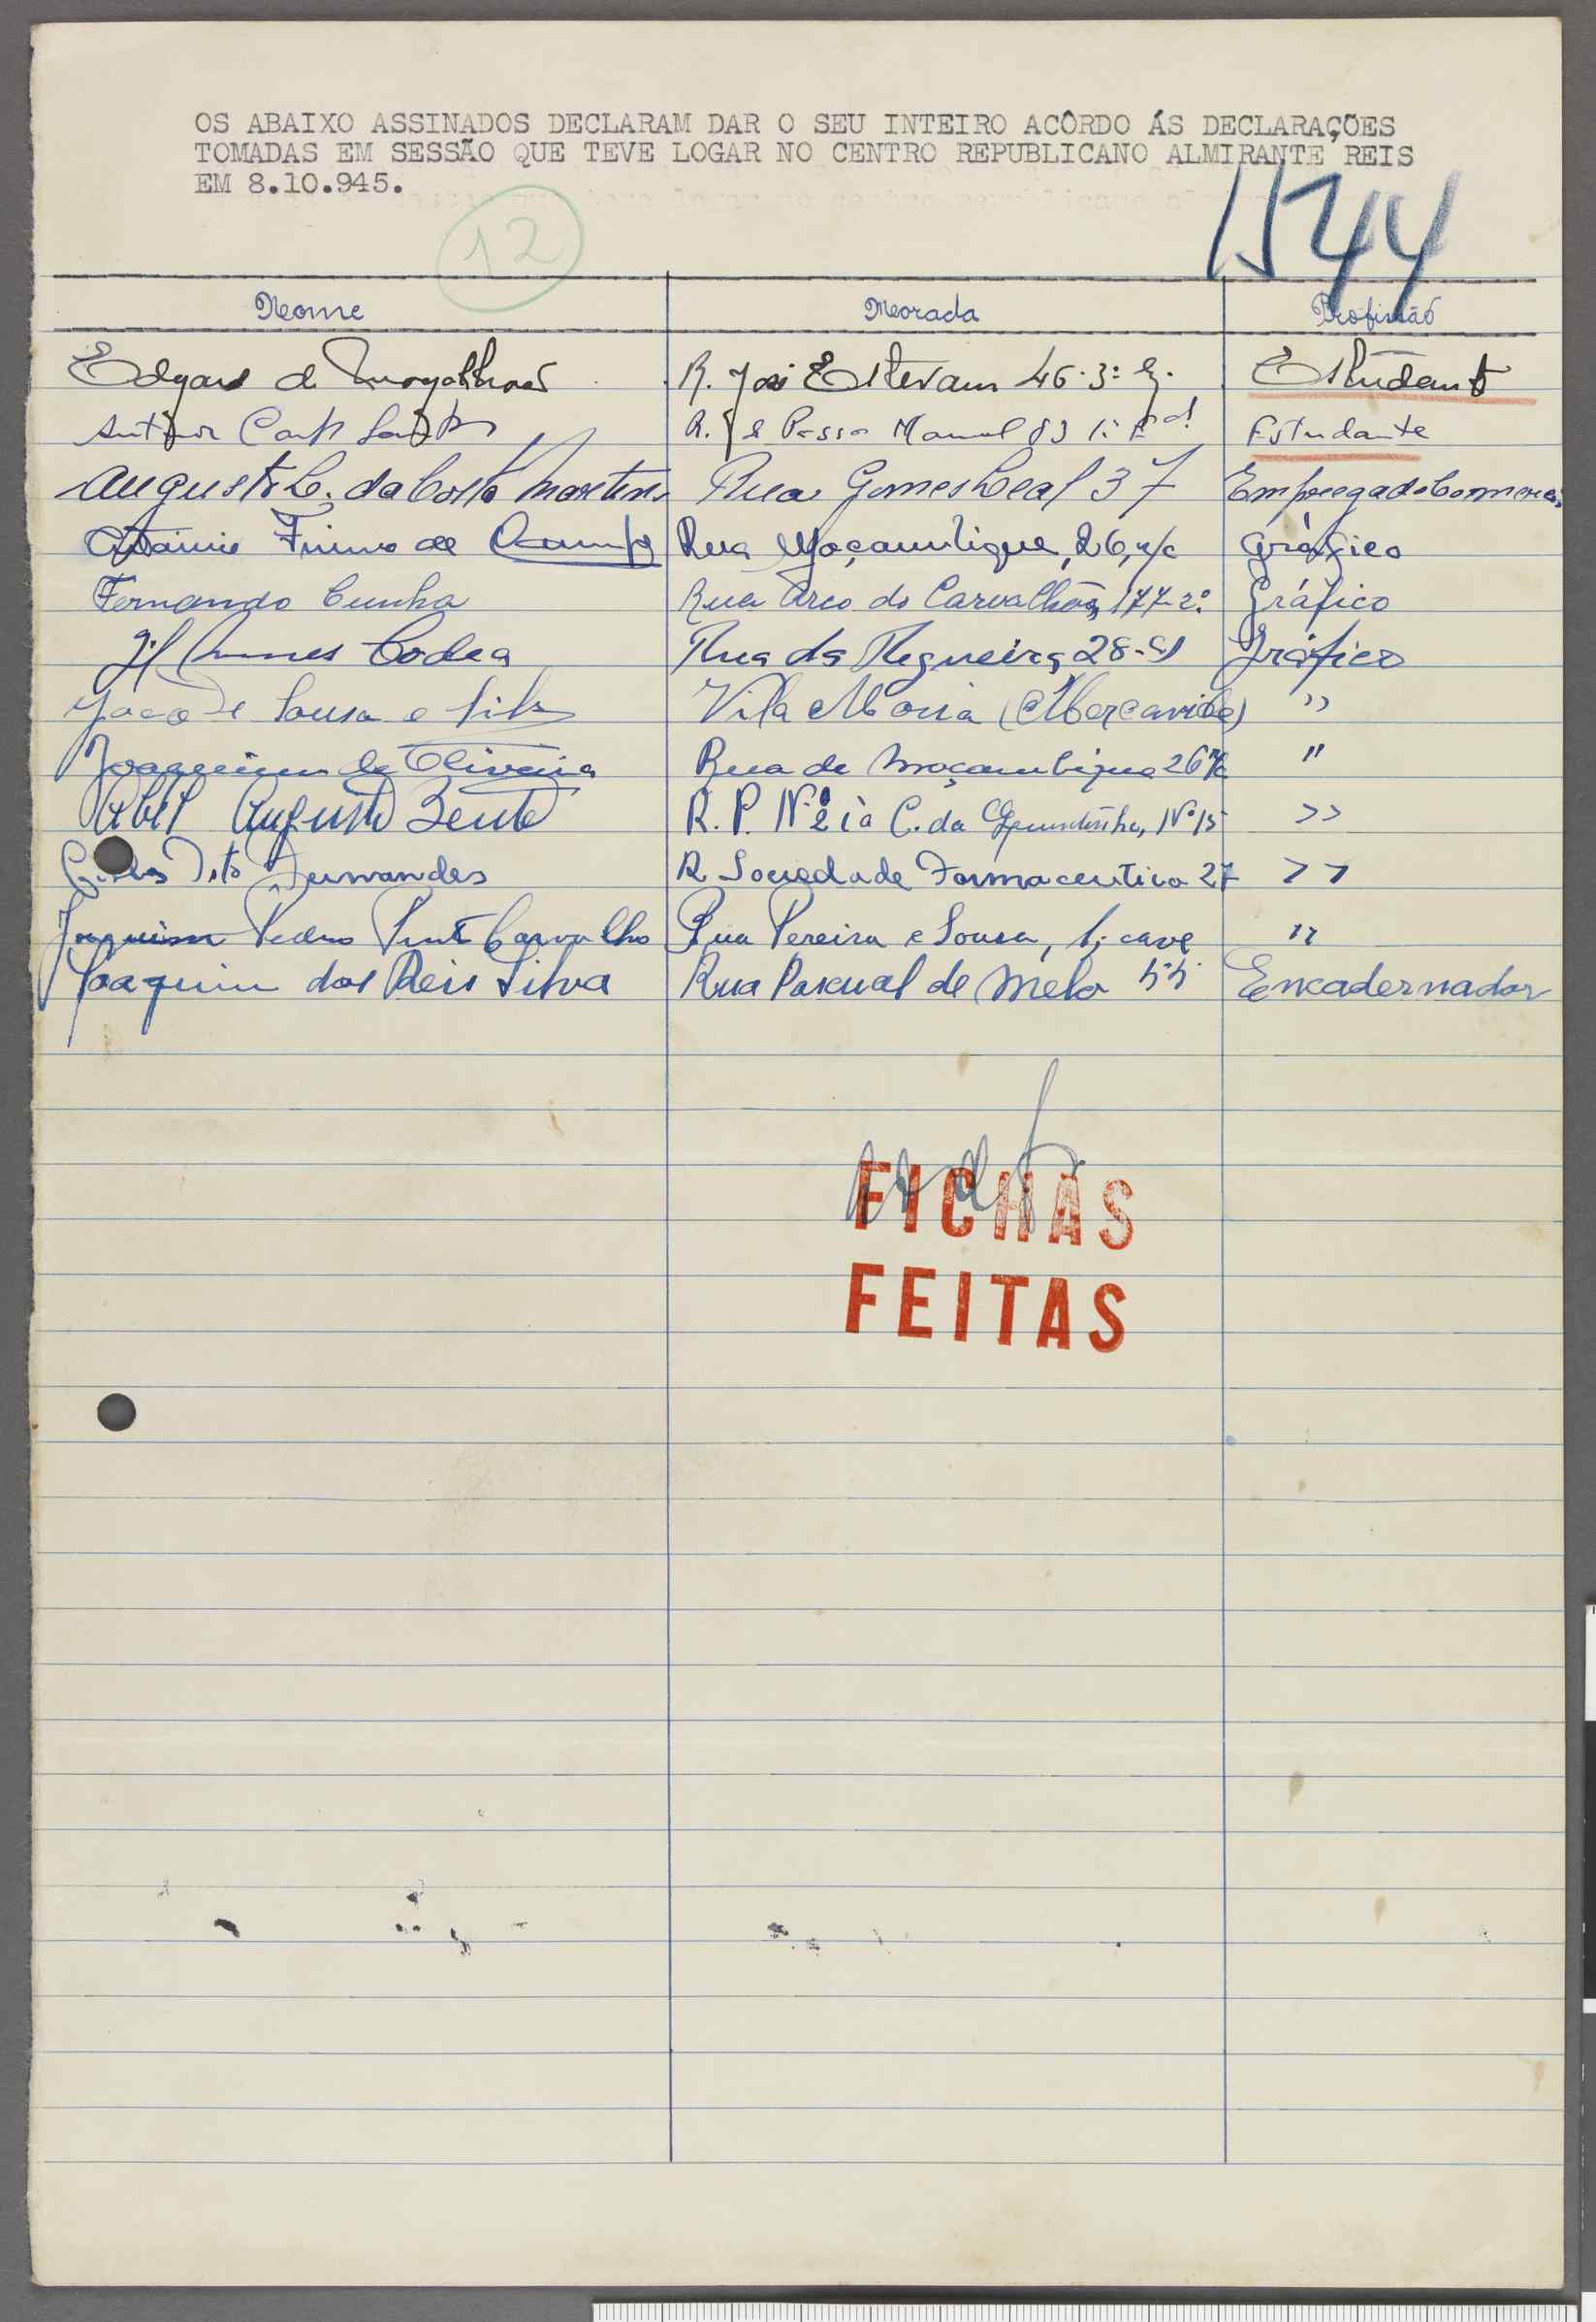 OS ABAIXO ASSINADOS DECLARAM DAR O SEU INTEIRO ACÔRDO ÁS DECLARAÇÕES
TOMADAS EM SESSÃO QUE TEVE LOGAR NO CENTRO REPUBLICANO ALMIRANTE REIS
EM 8.10.945.
12
1544
Nome Morada Profissão
Edgard de Magalhães R. José Estevam 46-3º E. Estudante
R. Passos Manuel 83 1º Estudante
Augusto C. da Costa Martins Rua Gomes Leal 37 Empregado Comercial
Firmo de Rua Moçambique, 26, r/c Gráfico
Fernando Cunha Rua Arco do Carvalhão, 177-2º Gráfico
Gil Nunes Codea Rua da Regueira 28-c/ Gráfico
de Sousa e Silva Vila Maria "
Joaquim de Oliveira Rua de Moçambique 26 r/c "
Abel Augusto Bento R. P. Nº 2 à C. da Quintinha, Nº 15 >>
Fernandes R. Sociedade Farmaceutica 27 >>
Joaquim Pedro Pinto Carvalho Rua Pereira e Sousa, 1; cave "
Joaquim dos Reis Silva Rua Pascoal de Melo 55 Encadernador
FICHAS
FEITAS